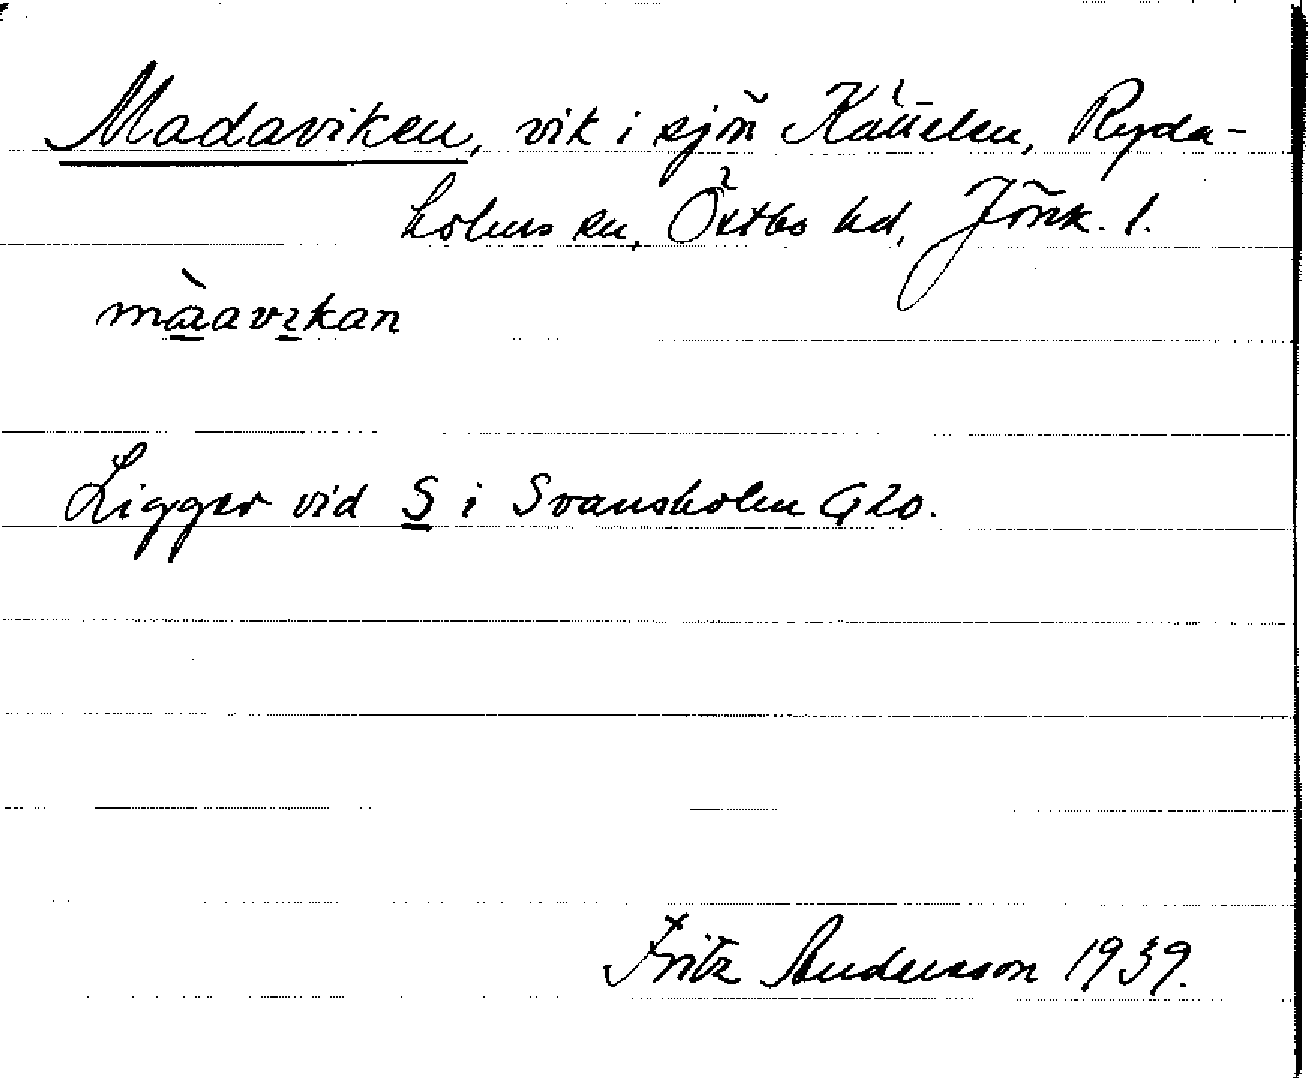 Madaviken, vik i sjön Ryda-
holms sn, Östbo hd, Jönk. l.
màavıkan
Ligger vid S i Svansholm G20.
Fritz Andersson 1939.